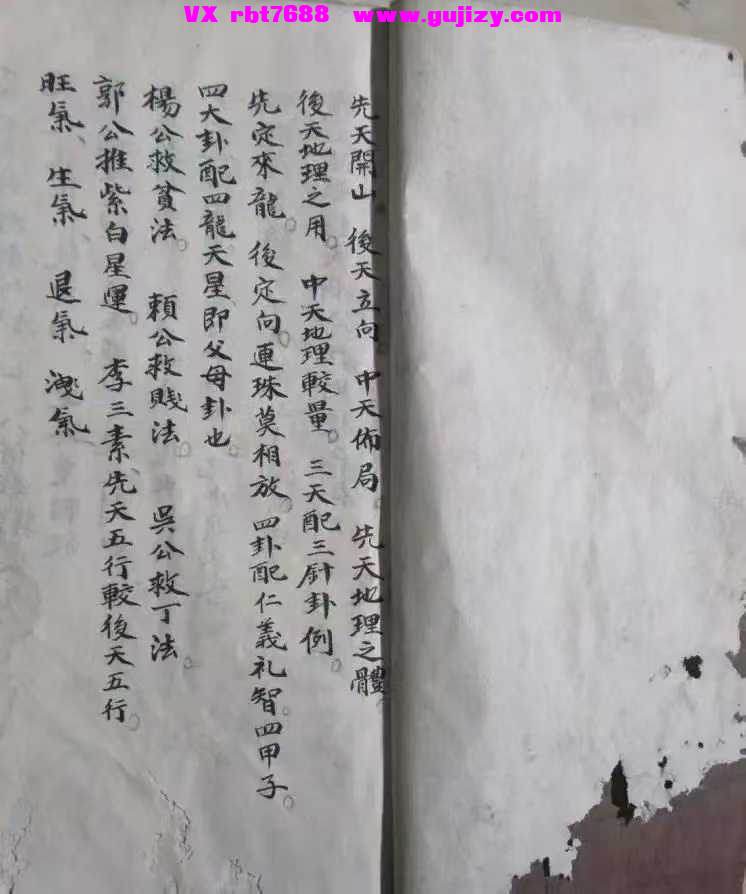 VX rbt7688 www.gujizy.com
先天開山 後天立向 中天佈局。先天地理之體
後天地理之用。中天地理較量。三天配三針卦例。
先定來龍。後定向連珠莫相放。四卦配仁義礼智四甲子。
四大卦配四龍天星即父母卦也。
楊公救貧法。賴公救賤法。吳公救丁法。
郭公推紫白星運。李三素先天五行較後天五行。
旺氣、生氣 退氣 洩氣。